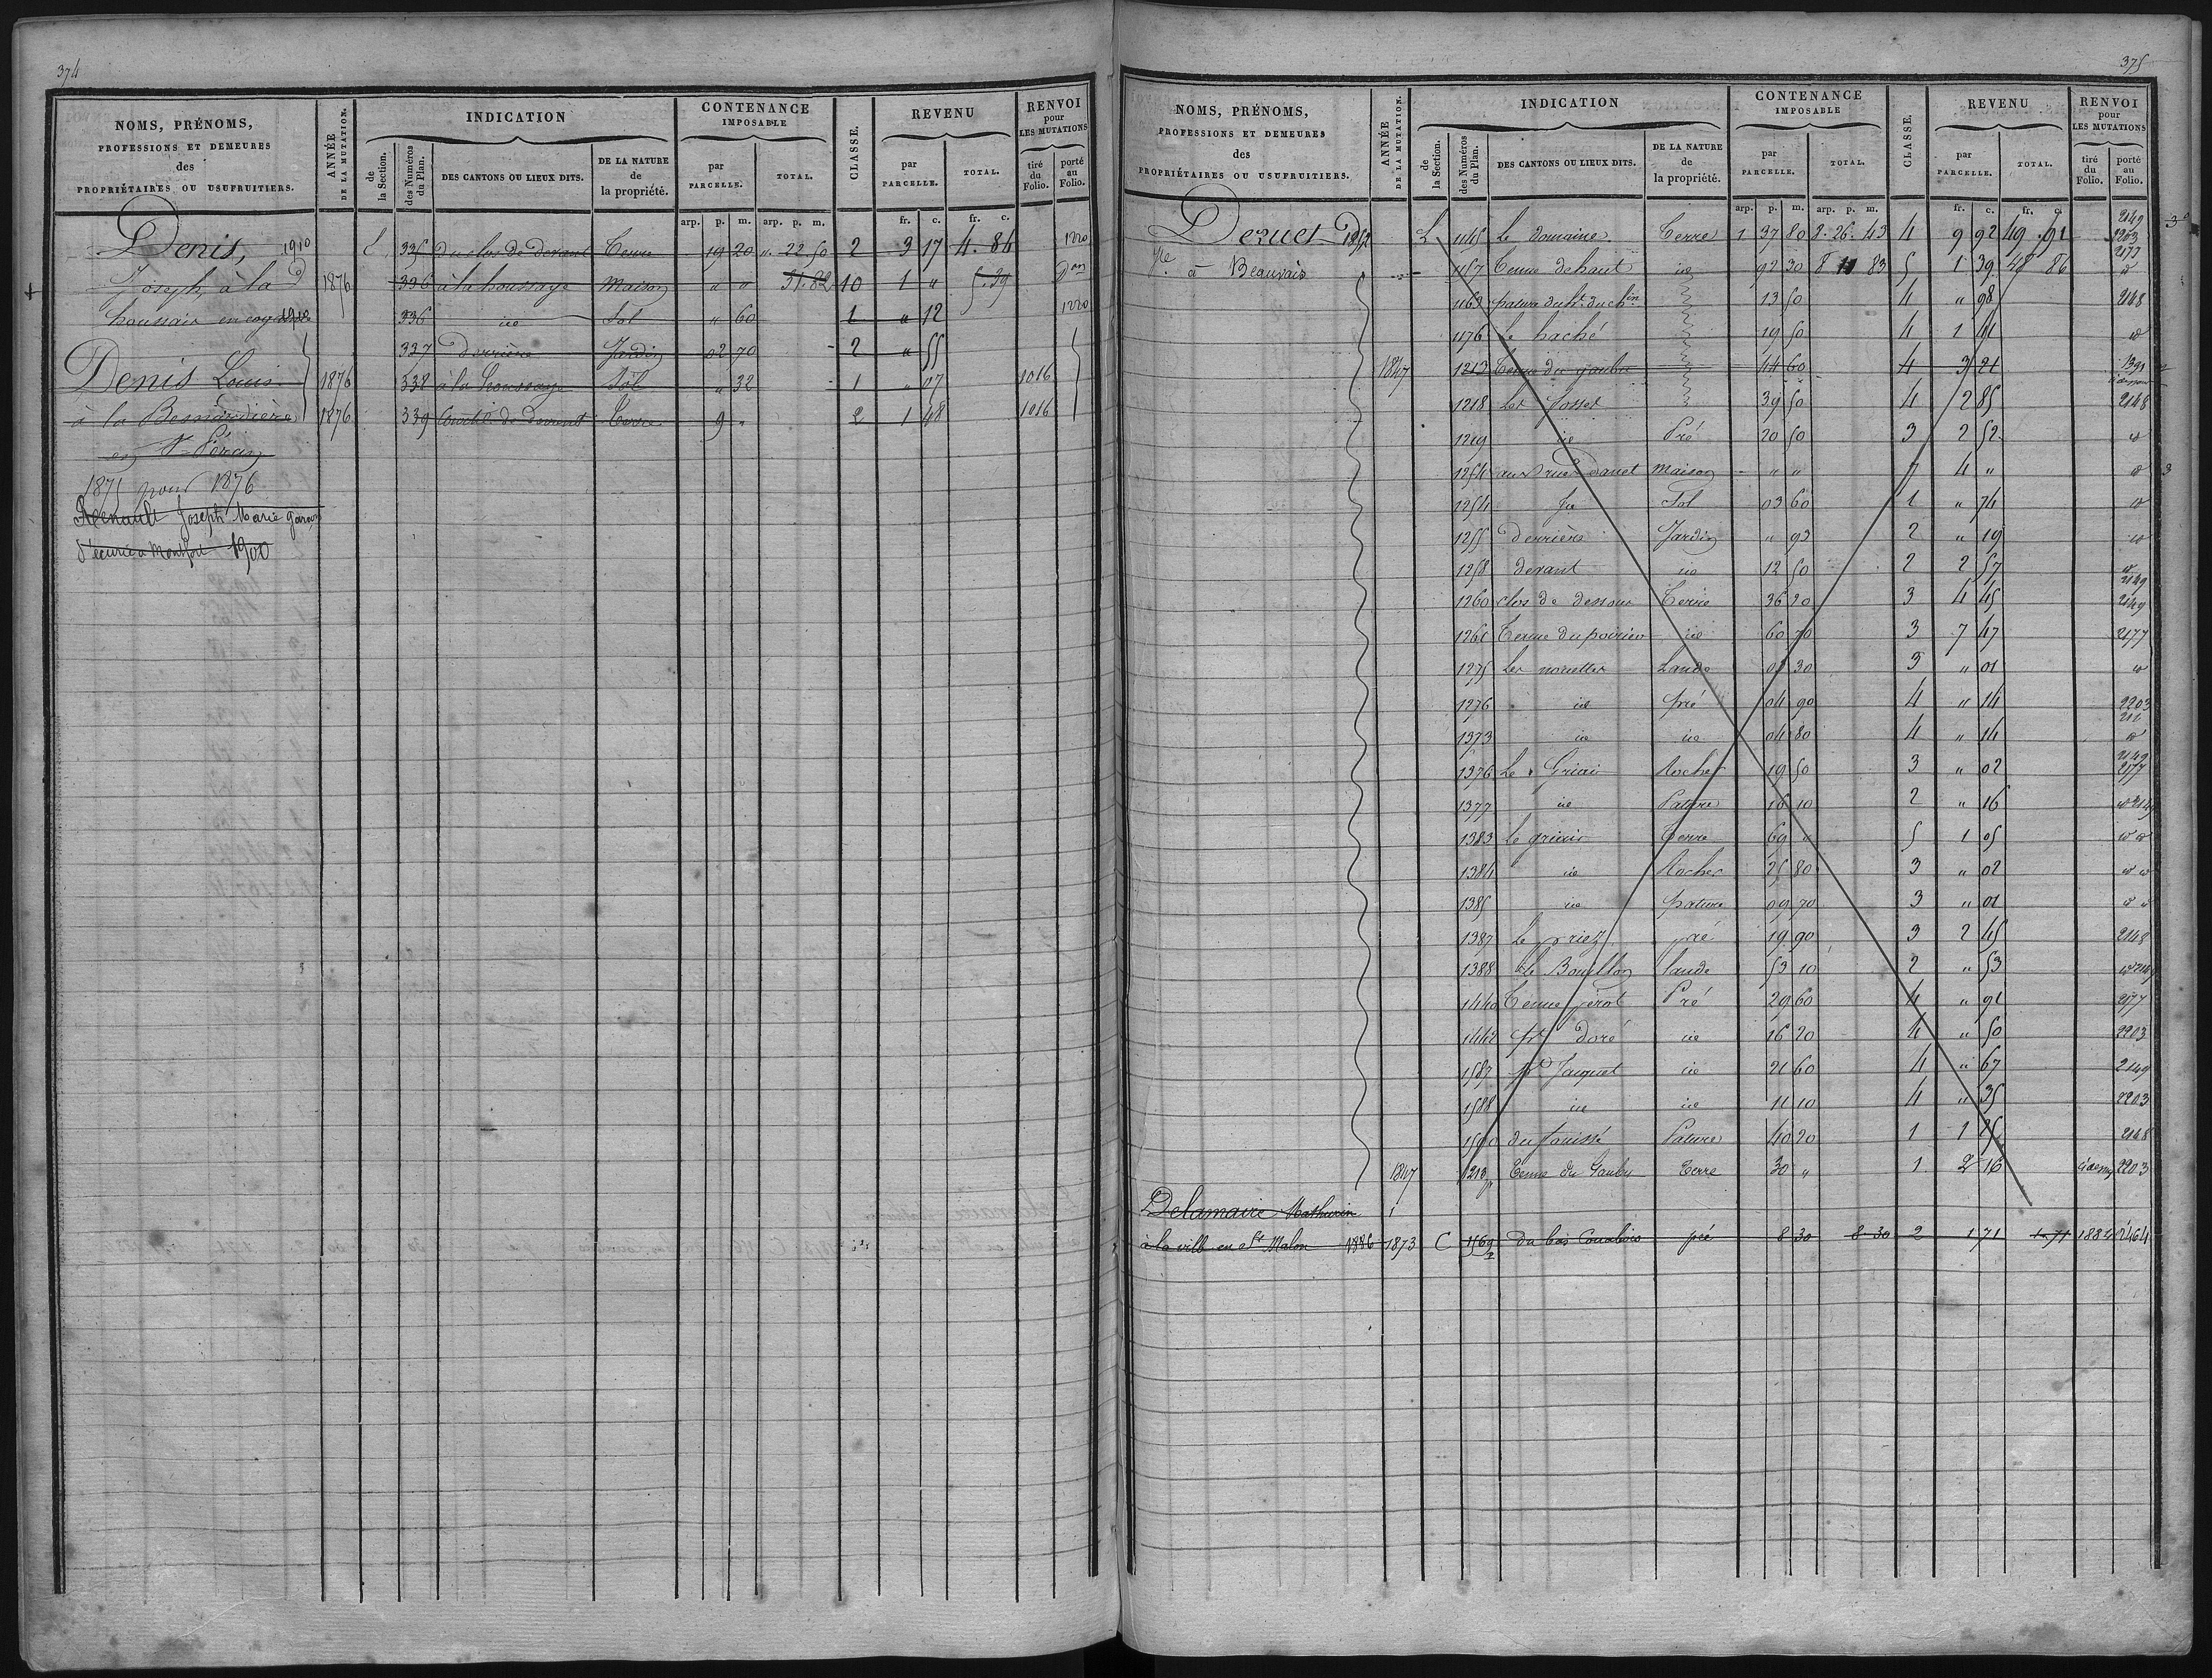 374
NOMS, PRÉNOMS, PROFESSIONS ET DEMEURES des PROPRIÉTAIRES OU USUFRUITIERS.
ANNÉE DE LA MUTATION.
INDICATION
de la Section.
des Numéros du Plan.
DES CANTONS OU LIEUX DITS.
DE LA NATURE de la propriété.
CONTENANCE IMPOSABLE
par PARCELLE.
TOTAL.
CLASSE.
REVENU
par PARCELLE.
TOTAL.
RENVOI pour LES MUTATIONS
tiré du Folio.
porté au Folio.
arp. p. m. arp. p. m. fr. c. fr. c.
Denis, 1910 335 du clos de devant Terre 19 20 " 22 50 2 3 17 4. 84 1220
Joseph, à la 1876 336 à la houssaye Maison " " 31.82 10 1 " 5.39
houssaie 336 id Sol " 60 1 " 12 1220
337 Derrière Jardin 02 70 2 " 55
Denis Louis 1876 338 à la houssaye Sol " 32 1 " 07 1016
à la Besnardière 1876 339 Courtil de devant Terre 9 " 2 1 48 1016
en St Péran
1875 pour 1876
Renault Joseph Marie garçon
d'écurie à Montfort 1900
375
NOMS, PRÉNOMS, PROFESSIONS ET DEMEURES des PROPRIÉTAIRES OU USUFRUITIERS.
ANNÉE DE LA MUTATION.
INDICATION
de la Section.
des Numéros du Plan.
DES CANTONS OU LIEUX DITS.
DE LA NATURE de la propriété.
CONTENANCE IMPOSABLE
par PARCELLE.
TOTAL.
CLASSE.
REVENU
par PARCELLE.
TOTAL.
RENVOI pour LES MUTATIONS
tiré du Folio.
porté au Folio.
arp. p. m. arp. p. m. fr. c. fr. c.
L 1145 Le Domaine Terre 1 37 80 8. 26. 43 4 9 92 49 91 2149 2203 2177
à Beauvais 1157 Tenue de haut id 92 30 8 11 83 5 1 39 48 86 id
1163 13 50 4 " 98 2148
1176 Le haché 19 50 4 1 41 id
1847 1213 Tenue du gaulu 44 60 4 3 21 1391
1218 Les fosses 39 50 4 2 85 2148
1219 id Pré 20 50 3 2 52 id
1254 maison " " 7 4 " id
1254 Sol 03 60 1 " 74 id
1255 Derrière Jardin " 93 2 " 19 id
1258 devant id 12 50 2 2 57 id 2149
1260 clos de dessous Terre 36 20 3 4 45 2149
1261 Tenue du poirier id 60 70 3 7 47 2177
1275 Les nouettes Lande 03 30 3 " 01 id
1276 id pré 04 90 4 " 14 2203
1373 id id 04 80 4 " 14 id
1376 Le Griais Rocher 19 50 3 " 02 2149 2177
1377 id Pature 16 10 2 " 16 id 2149
1383 Le griais Terre 69 " 5 1 05 id id
1384 id Rocher 25 80 3 " 02 id id
1385 id pature 09 70 3 " 01 id id
1387 Le priez pré 19 90 3 2 45 2148
1388 Le Bouillon lande 53 10 2 " 53 id 2149
1440 Tenue perot Pré 29 60 4 " 91 2177
1442 pré doré id 16 20 4 " 50 2203
1587 pré Jacquet id 21 60 4 " 67 2149
1588 id id 11 10 4 " 35 2203
1590 Pature 40 20 1 1 25 2148
1847 1213p Tenue du Gaulu Terre 30 " 1 2 16 idem 2203
Delamaire Mathurin
à la ville en St Malon 1886 1873 C 1169 Du bas Coualois pré 8 30 8 30 2 1 71 1.71 1884 2464